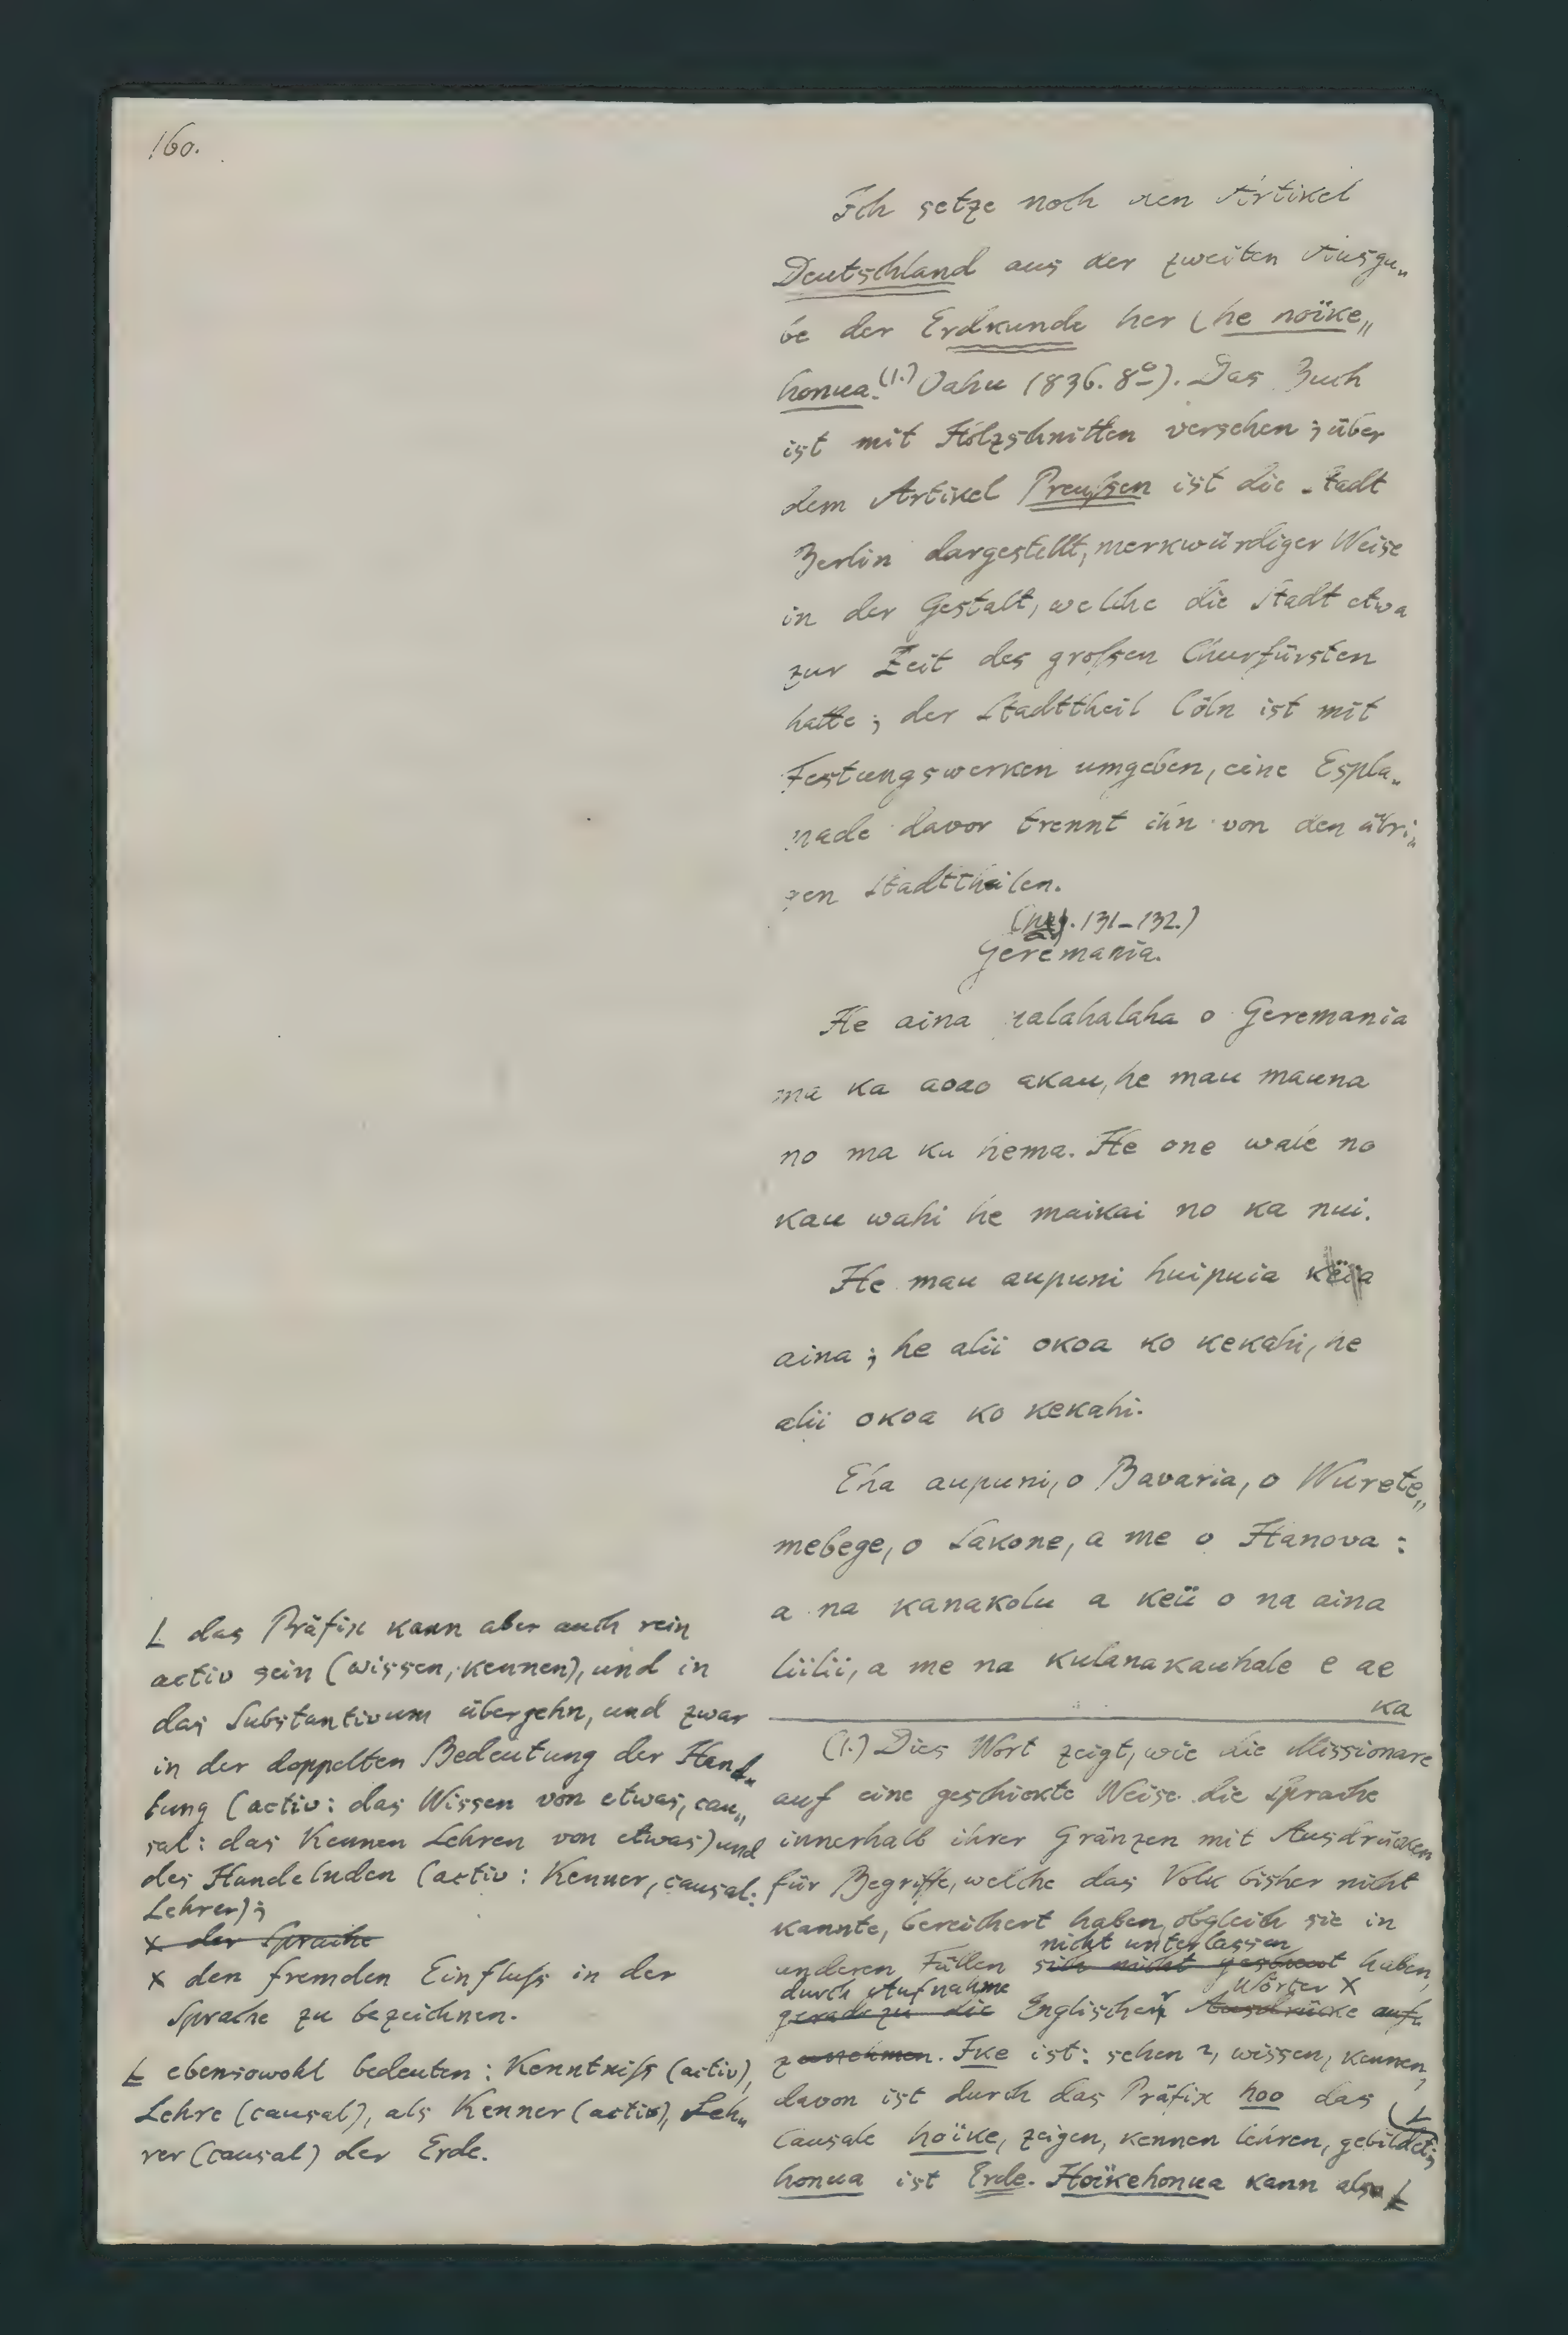 160.
Ich setze noch den Artikel
Deutschland aus der zweiten Ausga„
be der Erdkunde her (he hoïke„
honua.(1.) Oahu 1836. 8º). Das Buch
ist mit Holzschnitten versehen; über
dem Artikel Preußen ist die Stadt
Berlin dargestellt, merkwürdiger Weise
in der Gestalt, welche die Stadt etwa
zur Zeit des großen Churfürsten
hatte; der Stadttheil Cöln ist mit
Festungswerken umgeben, eine Espla„
nade davor trennt ihn von den übri„
gen Stadttheilen.
(pag. 131–132.)
Geremania.
He aina palahalaha o Geremania
ma ka aoao akau, he mau mauna
no ma ka hema. He one wale no
kau wahi he maikai no ka nui.
He mau aupuni huipuia keia
aina; he alii okoa ko kekahi, he
alii okoa ko kekahi.
Eha aupuni, o Bavaria, o Wurete„
mebege, o Sakone, a me o Hanova:
a na kanakolu a keü o na aina
liilii, a me na kulanakauhale e ae
ka
(1.) Dies Wort zeigt, wie die Missionare
auf eine geschickte Weise die Sprache
innerhalb ihrer Gränzen mit Ausdrücken
für Begriffe, welche das Volk bisher nicht
kannte, bereichert haben, obgleich sie in
nicht unterlassen
anderen Fällen sich nicht gescheut haben,
durch Aufnahme Wörter X
geradezu die Englischer Ausdrücke auf„
zunehmen. Ike ist: sehen 2, wissen, kennen,
davon ist durch das Präfix hoo das
Causale hoïke, zeigen, kennen lehren, gebildet; L
honua ist Erde. Hoïkehonua kann also Ł
L das Präfix kann aber auch rein
activ sein (wissen, kennen), und in
das Substantivum übergehn, und zwar
in der doppelten Bedeutung der Hand„
lung (activ: das Wissen von etwas, cau„
sal: das Kennen Lehren von etwas) und
des Handelnden (activ: Kenner, causal:
Lehrer);
X der Sprache
X den fremden Einfluß in der
Sprache zu bezeichnen.
Ł ebensowohl bedeuten: Kenntniß (activ),
Lehre (causal), als Kenner (activ), Leh„
rer (causal) der Erde.